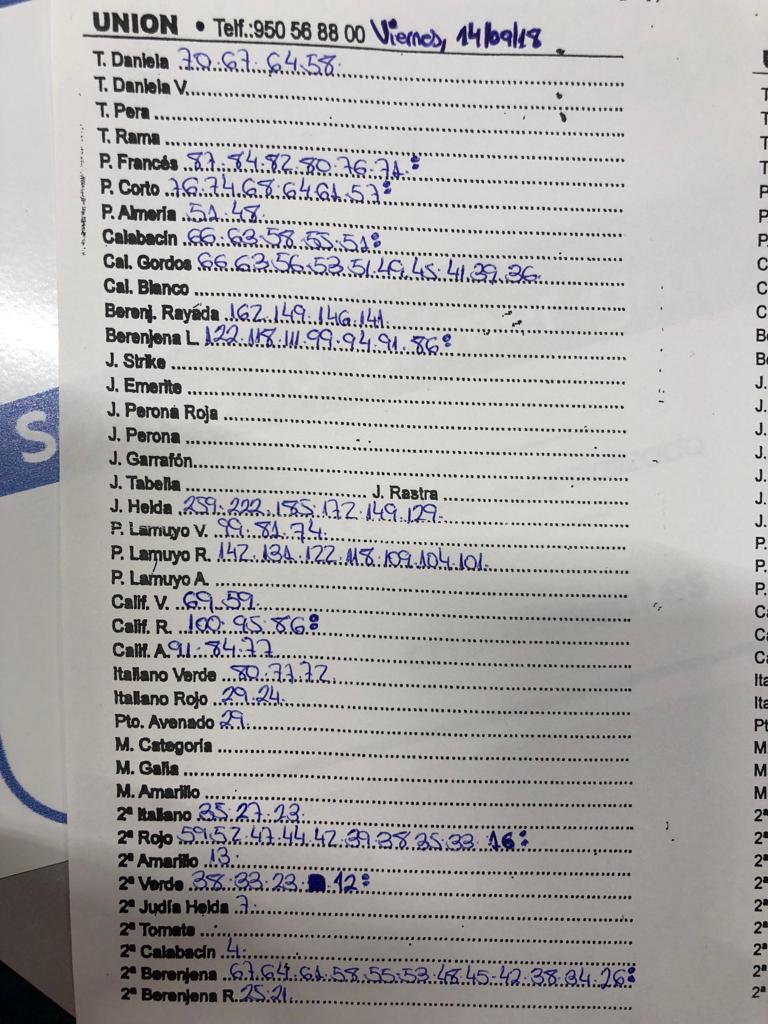 UNION • Telf.:950 56 88 00 Viernes, 14/09/18
T. Daniela 70.67.64.58.
T. Daniela V.
T. Pera
T. Rama
P. Francés 87.84.82.80.76.71:
P. Corto 76.74.68.64.61.57:
P. Almería 51.48.
Calabacín 66.63.58.55.51:
Cal. Gordos 66.63.56.53.51.49.45.41.39.36.
Cal. Blanco
Berenj. Rayada 162.149.146.141.
Berenjena L. 122.118.111.99.94.91.86:
J. Strike
J. Emerite
J. Perona Roja
J. Perona
J. Garrafón
J. Tabella J. Rastra
J. Helda 259.222.185.172.149.129.
P. Lamuyo V. 99.81.74.
P. Lamuyo R. 142.131.122.118.109.104.101.
P. Lamuyo A.
Calif. V. 69.59.
Calif. R. 100.95.86:
Calif. A. 91.84.77
Italiano Verde 80.77.72.
Italiano Rojo 29.24.
Pto. Avenado 29.
M. Categoría
M. Galia
M. Amarillo
2ª Italiano 35.27.23.
2ª Rojo 59.52.47.44.42.39.38.35.33. 16:
2ª Amarillo 13.
2ª Verde 38.33.23. 12:
2ª Judía Helda 7.
2ª Tomate
2ª Calabacín 4.
2ª Berenjena 67.64.61.58.55.53.48.45.42.38.34.26:
2ª Berenjena R. 25.21.